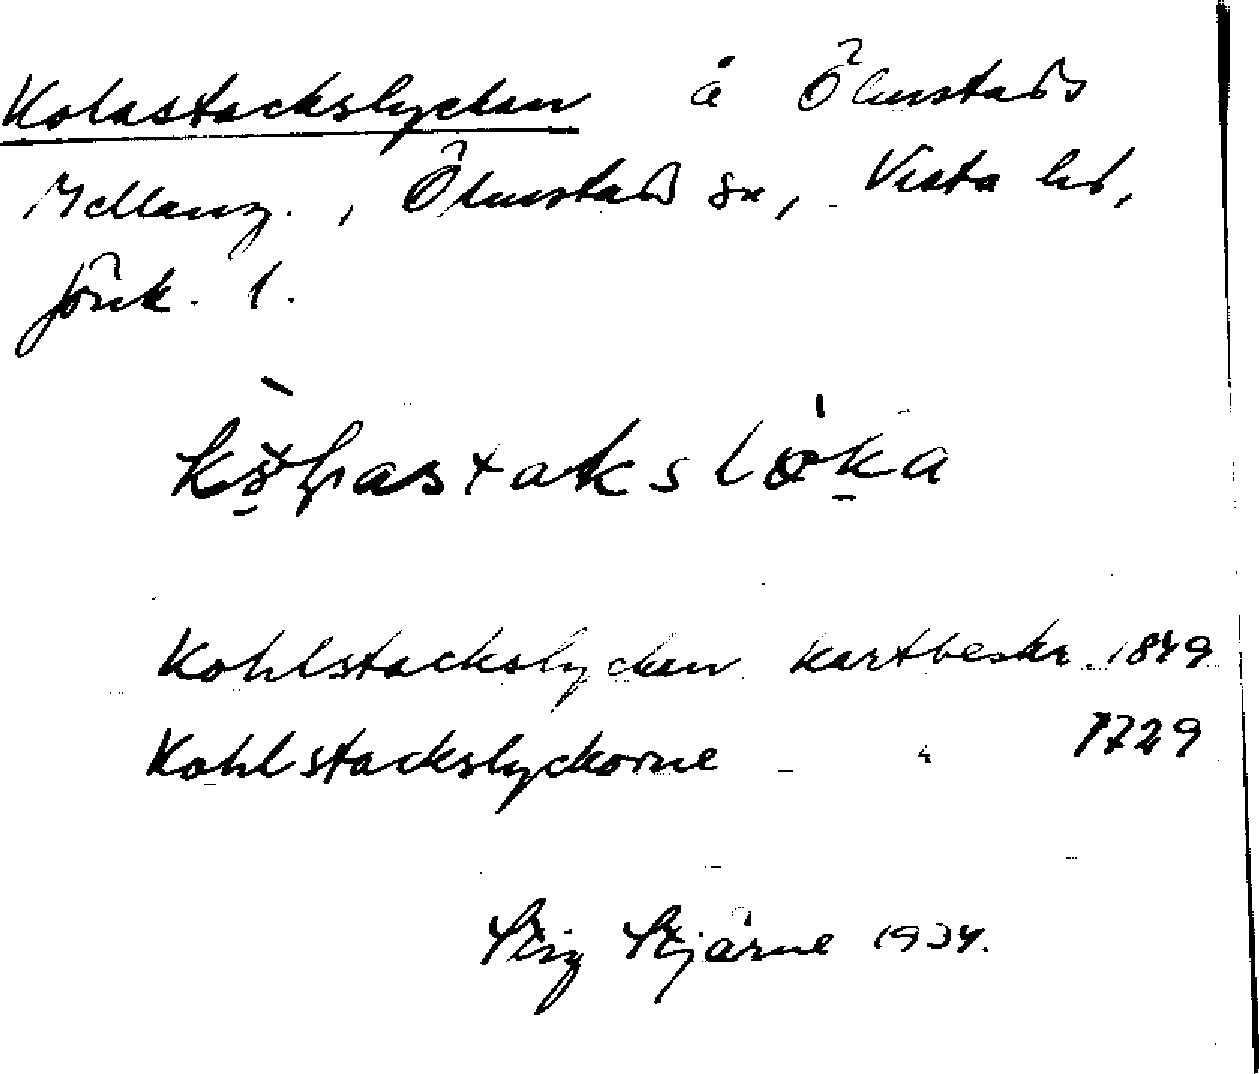 Kolastackslyckan å Ölmstads
Mellang., Ölmstads sn, Vista hd,
Jönk. l.
Kohlstackslyckan kartbeskr. 1849
Kohlstackslyckorne — " 1729
Stig Stjärne 1934.